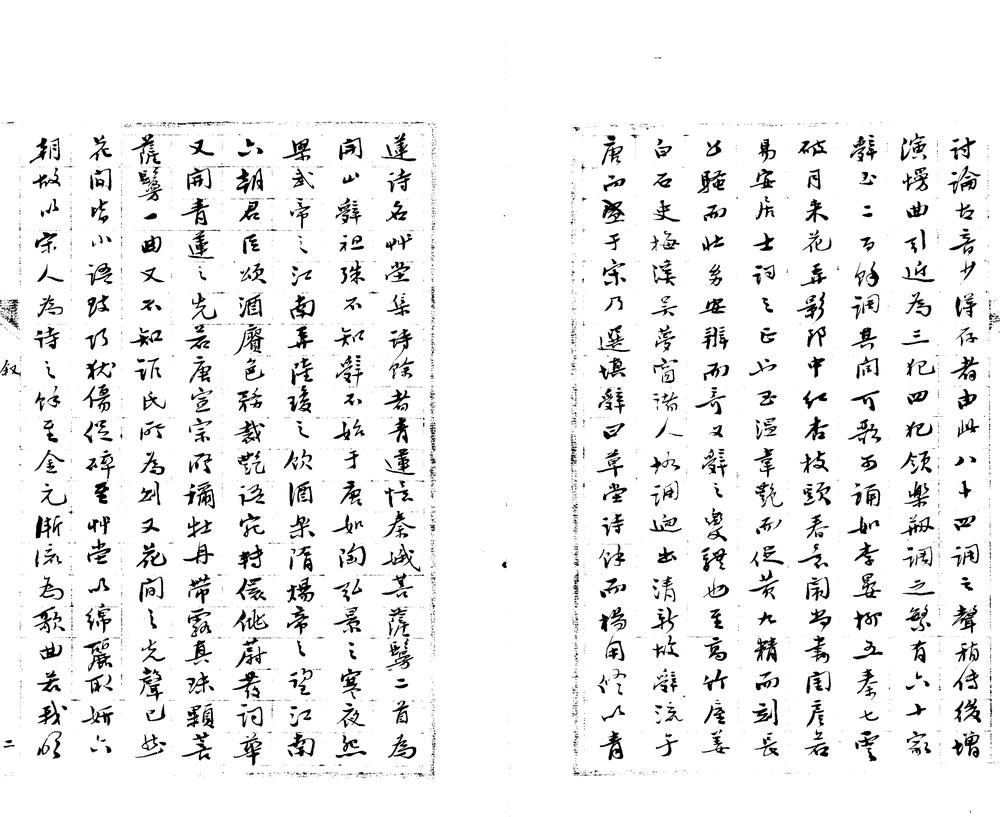 討論古音少得存者由此八十四調之聲稍傳後增
演慢曲引近為三犯四犯領樂撥調之繁有六十家
辭至二百餘調其間可歌可誦如李晏柳五秦七雲
破月來花弄影郎中紅杏枝頭春意閙尚書閨彥若
易安居士詞之正也至溫韋艷而促黃九精而刻長
公騷而壯幼安辨而奇又辭之變體也至高竹屋姜
白石史梅溪吳夢窗諸人格調迥出清新故辭流于
唐而盛于宋乃選填辭曰草堂詩餘而楊用修以青
蓮詩名艸堂集詩餘者青蓮憶秦娥菩薩鬘二首為
開山辭祖殊不知辭不始于唐如陶弘景之寒夜怨
梁武帝之江南弄陸瓊之飲酒樂隋煬帝之望江南
六朝君臣頌酒賡色務裁艷語宛轉儇佻蔚發詞華
又開青蓮之先若唐宣宗所誦牡丹帶露真珠顆菩
薩鬘一曲又不知誰氏所為則又花間之先聲已然
花間皆小語致巧猶傷促碎至艸堂以綿麗取妍六
朝故以宋人為詩之餘至金元漸流為歌曲若我明
叙
二